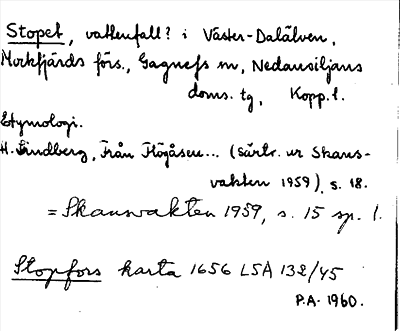 Stopet, vattenfall? i Väster-Dalälven,
Mockfjärds förs., Gagnefs sn, Nedansiljans
doms. tg, Kopp. l.
Etymologi.
H. Lindberg, Från Högåsen... (särtr. ur Skans-
vakten 1959), s. 18.
= Skansvakten 1959, s. 15 sp. 1.
Stopfors karta 1656 LSA 132/45
P.A. 1960.